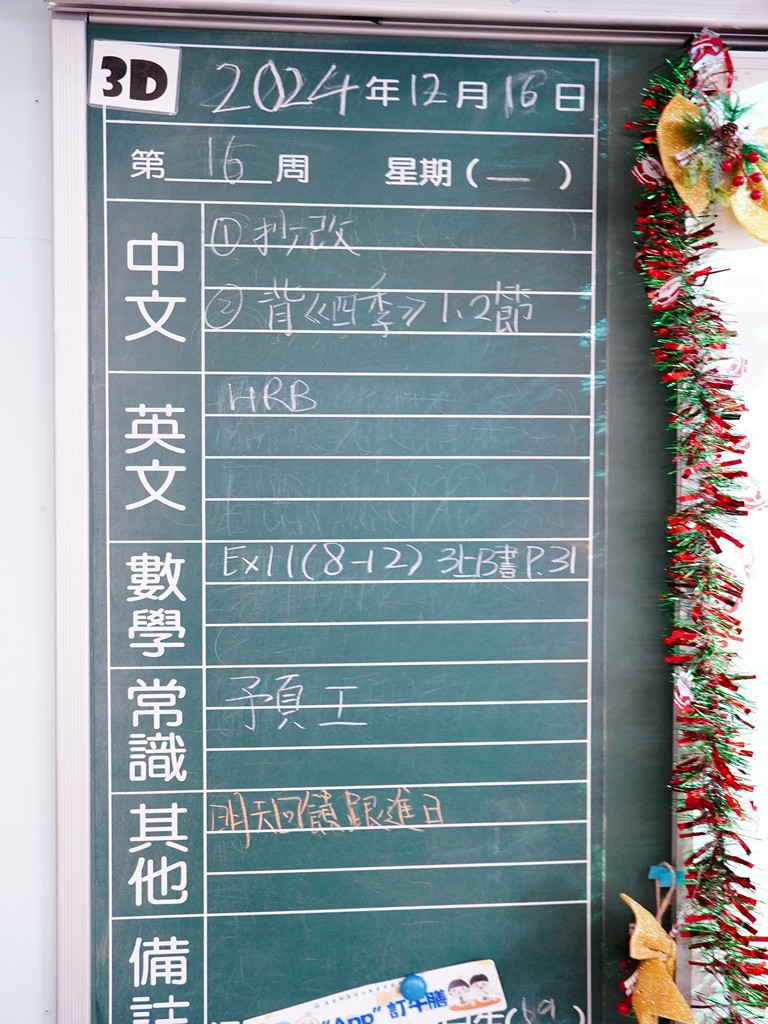 3D
2024年12月16日
第16周 星期(一)
中文
①抄改
②背《四季》1,2節
英文
HRB
數學
Ex11(8-12) 3上B書P.31
常識
預工
其他
明天回饋跟進日
備註
"App"訂午膳